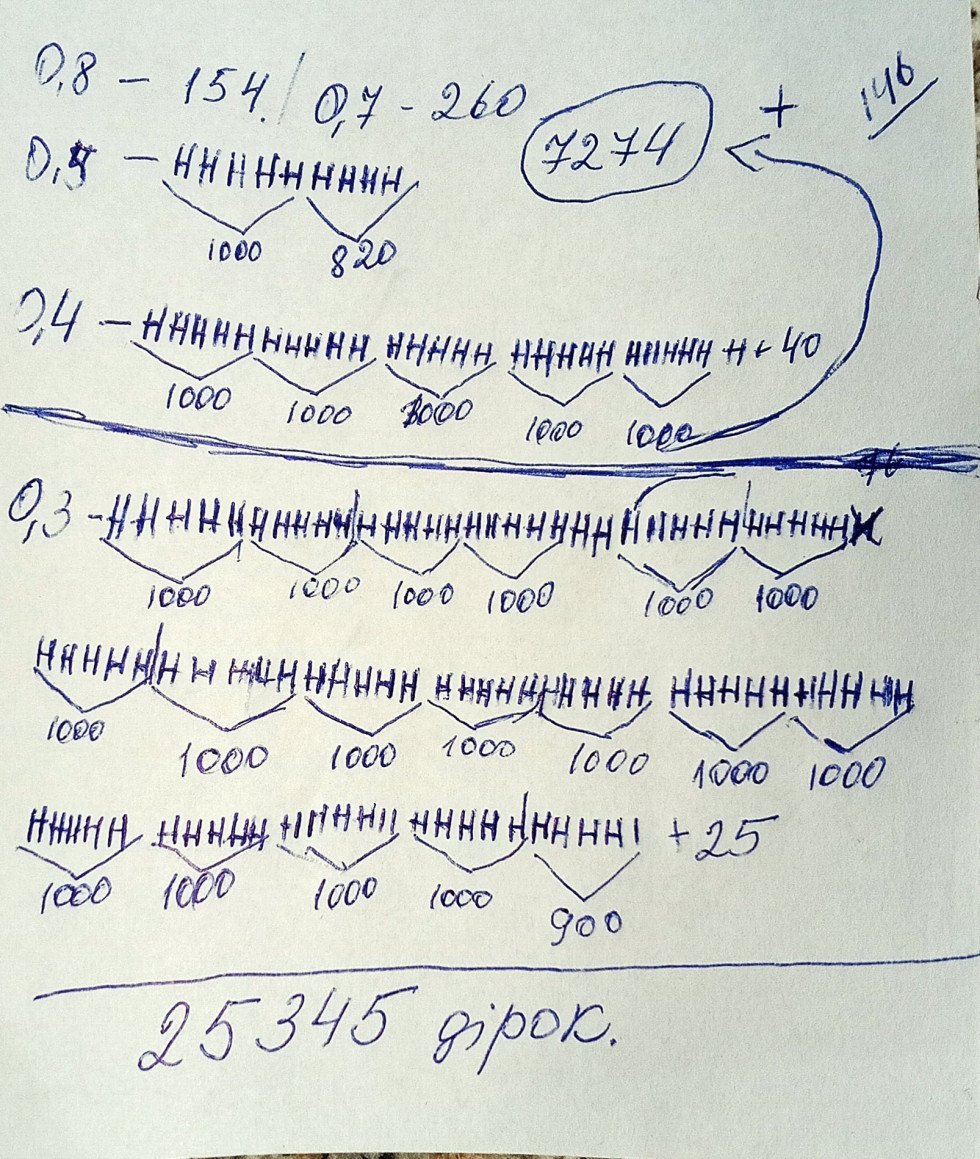 0,8 – 154. / 0,7 - 260
7274
+ 146
0,5 –
1000 820
0,4 – + 40
1000 1000 1000 1000 1000
0,3 -
1000 1000 1000 1000 1000 1000
1000 1000 1000 1000 1000 1000 1000
+ 25
1000 1000 1000 1000 900
25345 дірок.